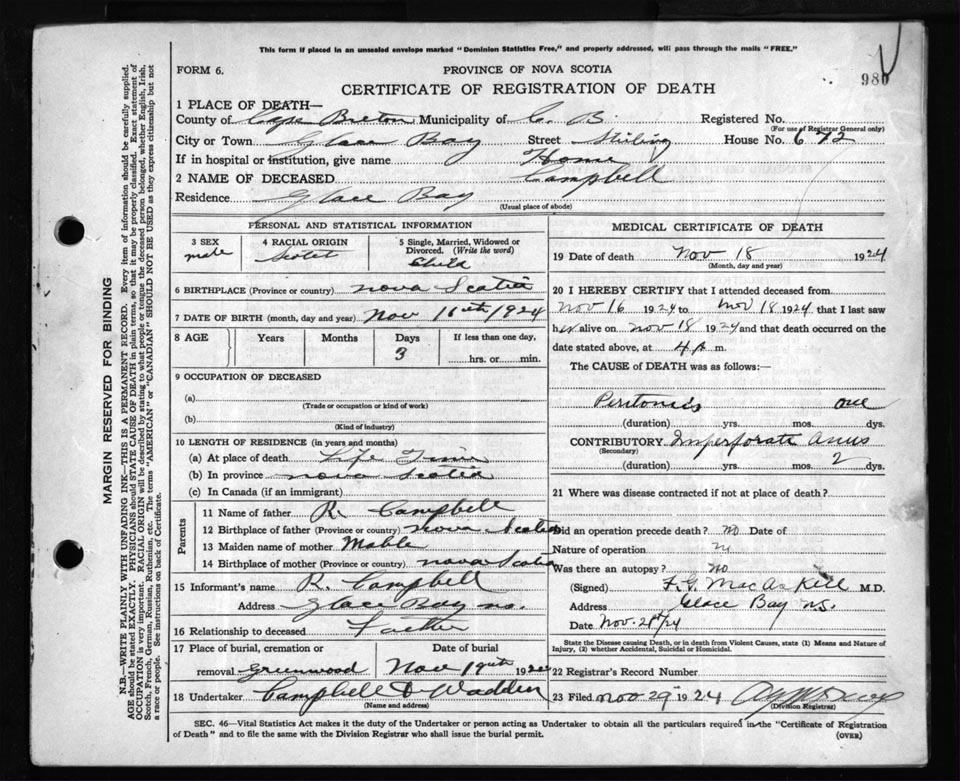 This form if placed in an unsealed envelope marked "Dominion Statistics Free," and properly addressed, will pass through the mails "FREE."
FORM 6.
PROVINCE OF NOVA SCOTIA
980
CERTIFICATE OF REGISTRATION OF DEATH
1 PLACE OF DEATH—
County of Cape Breton Municipality of C. B. Registered No.
(For use of Registrar General only)
City or Town Glace Bay Street Stirling House No. 692
If in hospital or institution, give name Home
2 NAME OF DECEASED Campbell
Residence Glace Bay
(Usual place of abode)
PERSONAL AND STATISTICAL INFORMATION
3 SEX male
4 RACIAL ORIGIN Scotch
5 Single, Married, Widowed or Divorced. (Write the word) Child
6 BIRTHPLACE (Province or country) Nova Scotia
7 DATE OF BIRTH (month, day and year) Nov 16th 1924
8 AGE Years Months Days If less than one day,
3 hrs. or min.
9 OCCUPATION OF DECEASED
(a)
(Trade or occupation or kind of work)
(b)
(Kind of industry)
10 LENGTH OF RESIDENCE (in years and months)
(a) At place of death Life Time
(b) In province Nova Scotia
(c) In Canada (if an immigrant)
Parents
11 Name of father R. Campbell
12 Birthplace of father (Province or country) Nova Scotia
13 Maiden name of mother Mable
14 Birthplace of mother (Province or country) Nova Scotia
15 Informant's name R. Campbell
Address Glace Bay N.S.
16 Relationship to deceased Father
17 Place of burial, cremation or Date of burial
removal Greenwood Nov 19th 1924
18 Undertaker Campbell & Wadden
(Name and address)
MEDICAL CERTIFICATE OF DEATH
19 Date of death Nov 18 1924
(Month, day and year)
20 I HEREBY CERTIFY that I attended deceased from
Nov 16 1924 to Nov 18 1924 that I last saw
h alive on Nov 18 1924 and that death occurred on the
date stated above, at 4 A m.
The CAUSE of DEATH was as follows:—
Peritonitis one
(duration) yrs. mos. dys.
CONTRIBUTORY Imperforate Anus
(Secondary)
(duration) yrs. mos. 2 dys.
21 Where was disease contracted if not at place of death?
Did an operation precede death? No Date of
Nature of operation
Was there an autopsy? No
(Signed) F. G. MacAskill M.D.
Address Glace Bay N.S.
Date Nov. 28/24
State the Disease causing Death, or in death from Violent Causes, state (1) Means and Nature of
Injury, (2) whether Accidental, Suicidal or Homicidal.
22 Registrar's Record Number
23 Filed Nov 29 1924
(Division Registrar)
SEC. 46—Vital Statistics Act makes it the duty of the Undertaker or person acting as Undertaker to obtain all the particulars required in the "Certificate of Registration
of Death" and to file the same with the Division Registrar who shall issue the burial permit.
(OVER)
MARGIN RESERVED FOR BINDING
N.B.—WRITE PLAINLY WITH UNFADING INK—THIS IS A PERMANENT RECORD. Every item of information should be carefully supplied.
AGE should be stated EXACTLY. PHYSICIANS should STATE CAUSE OF DEATH in plain terms, so that it may be properly classified. Exact statement of
OCCUPATION is very important. RACIAL ORIGIN will be described by stating to what people or tongue the deceased person belonged, whether English, Irish,
Scotch, French, German, Russian, Ruthenian, etc. The terms "AMERICAN" or "CANADIAN" SHOULD NOT BE USED as they express citizenship but not
a race or people. See instructions on back of Certificate.